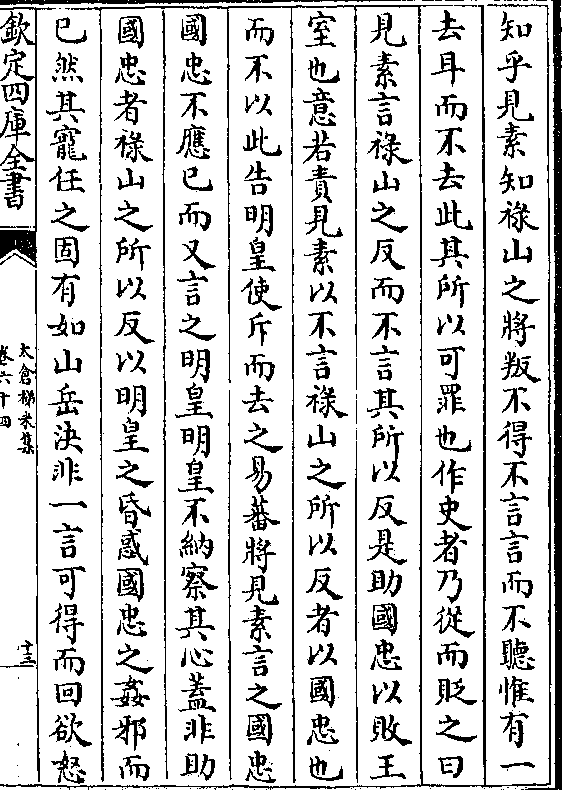 知乎見素知祿山之將叛不得不言言而不聽惟有一
去耳而不去此其所以可罪也作史者乃從而貶之曰
見素言祿山之反而不言其所以反是助國忠以敗王
室也意若責見素以不言祿山之所以反者以國忠也
而不以此告明皇使斥而去之易蕃將見素言之國忠
國忠不應已而又言之明皇明皇不納察其心蓋非助
國忠者祿山之所以反以明皇之昏惑國忠之姦邪而
已然其寵任之固有如山岳決非一言可得而回欲怒
欽定四庫全書
太倉稊米集
卷六十四
十三